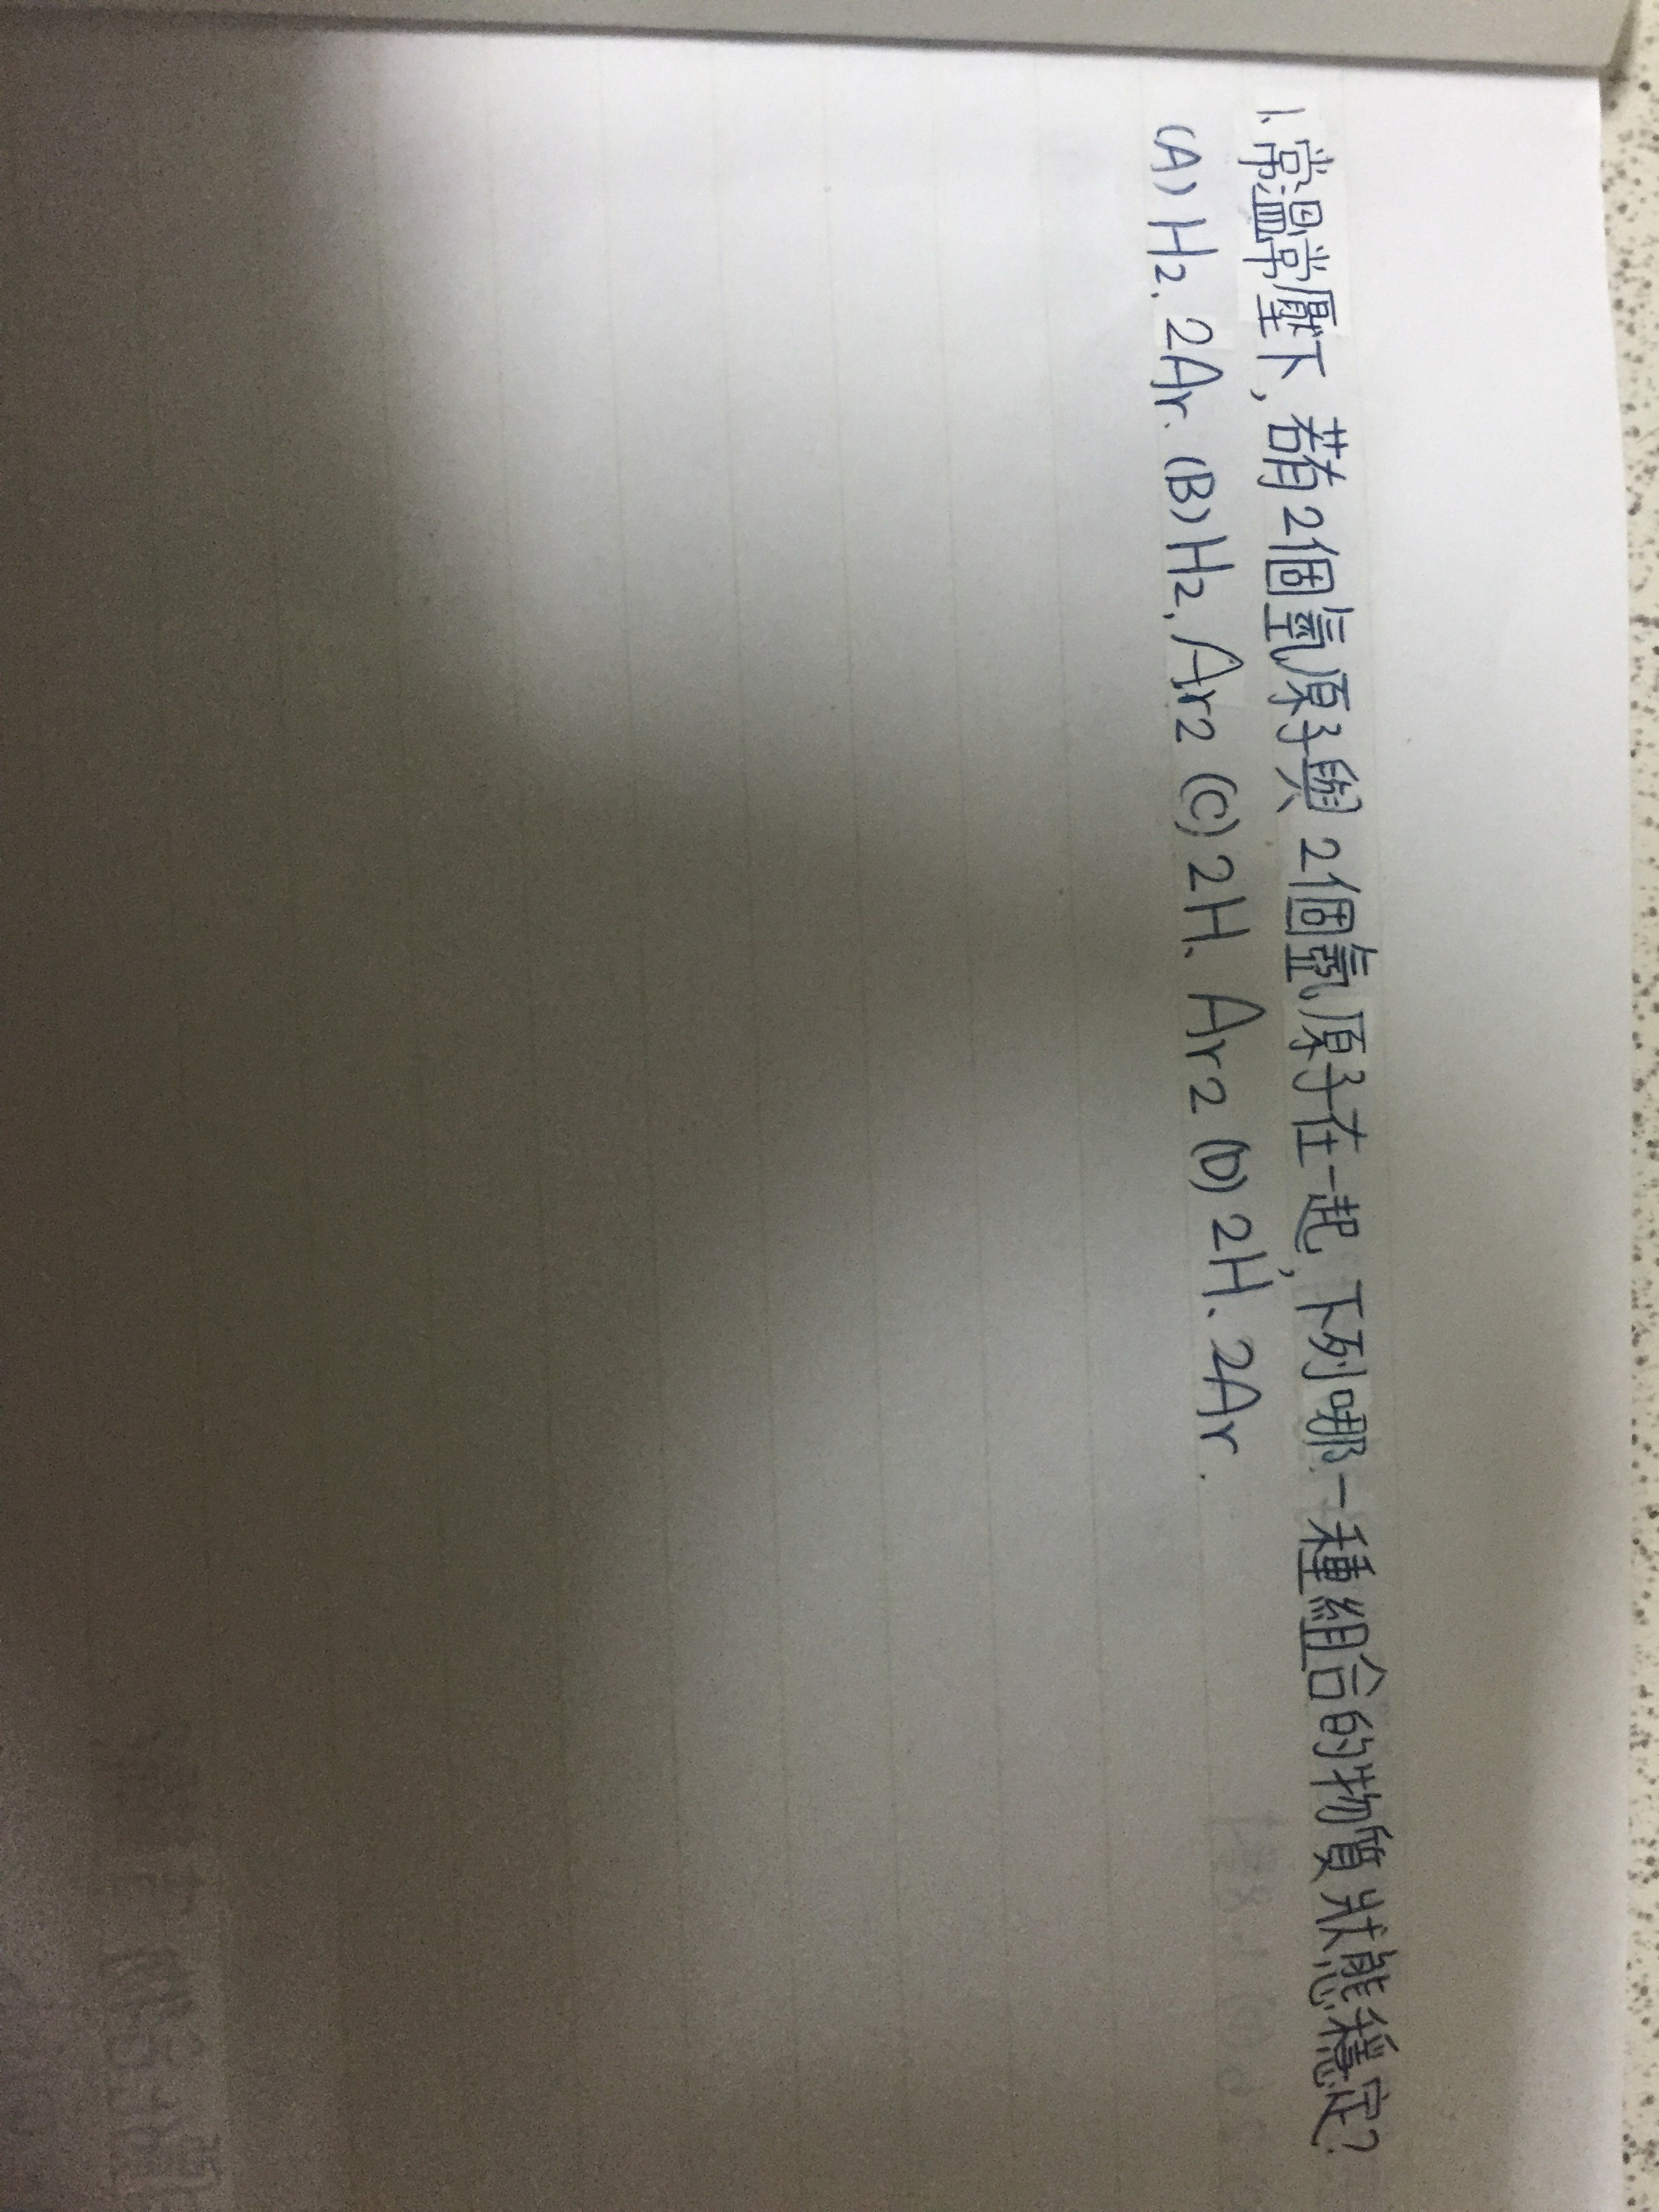 1、常溫常壓下,若有2個氫原子與2個氬原子在一起,下列哪一種組合的物質狀態穩定?
(A) H2、2Ar、(B) H2、Ar2 (C) 2H、Ar2 (D) 2H、2Ar.